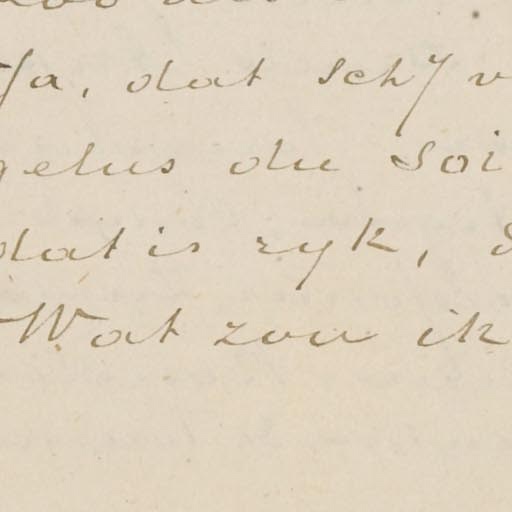 Ja, dat schÿ v
gelus du Soi
dat is ryk,
Wat zou ik